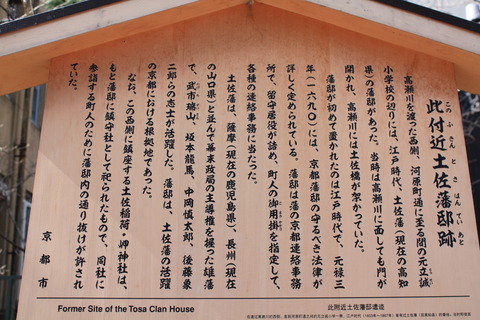 此付近土佐藩邸跡
このふきんとさはんていあと
高瀬川を渡った西側、河原町通に至る間の元立誠
小学校の辺りには、江戸時代、土佐藩（現在の高知
県）の藩邸があった。当時は高瀬川に面しても門が
開かれ、高瀬川には土佐橋が架かっていた。
藩邸が初めて置かれたのは江戸時代で、元禄三
年（一六九〇）には、京都藩邸の守るべき法律が
詳しく定められている。藩邸は藩の京都連絡事務
所で、留守居役が詰め、町人の御用掛を指定して、
各種の連絡事務に当たった。
土佐藩は、薩摩（現在の鹿児島県）、長州（現在
の山口県）と並んで幕末政局の主導権を握った雄藩
で、武市瑞山、坂本龍馬、中岡慎太郎、後藤象
二郎らの志士が活躍した。藩邸は、土佐藩の活躍
の京都における根拠地であった。
なお、この西側に鎮座する土佐稲荷・岬神社は、
もと藩邸に鎮守社として祀られたもので、同社に
参詣する町人のために藩邸内の通り抜けが許され
ていた。
京都市
Former Site of the Tosa Clan House
此附近土佐藩邸遺迹